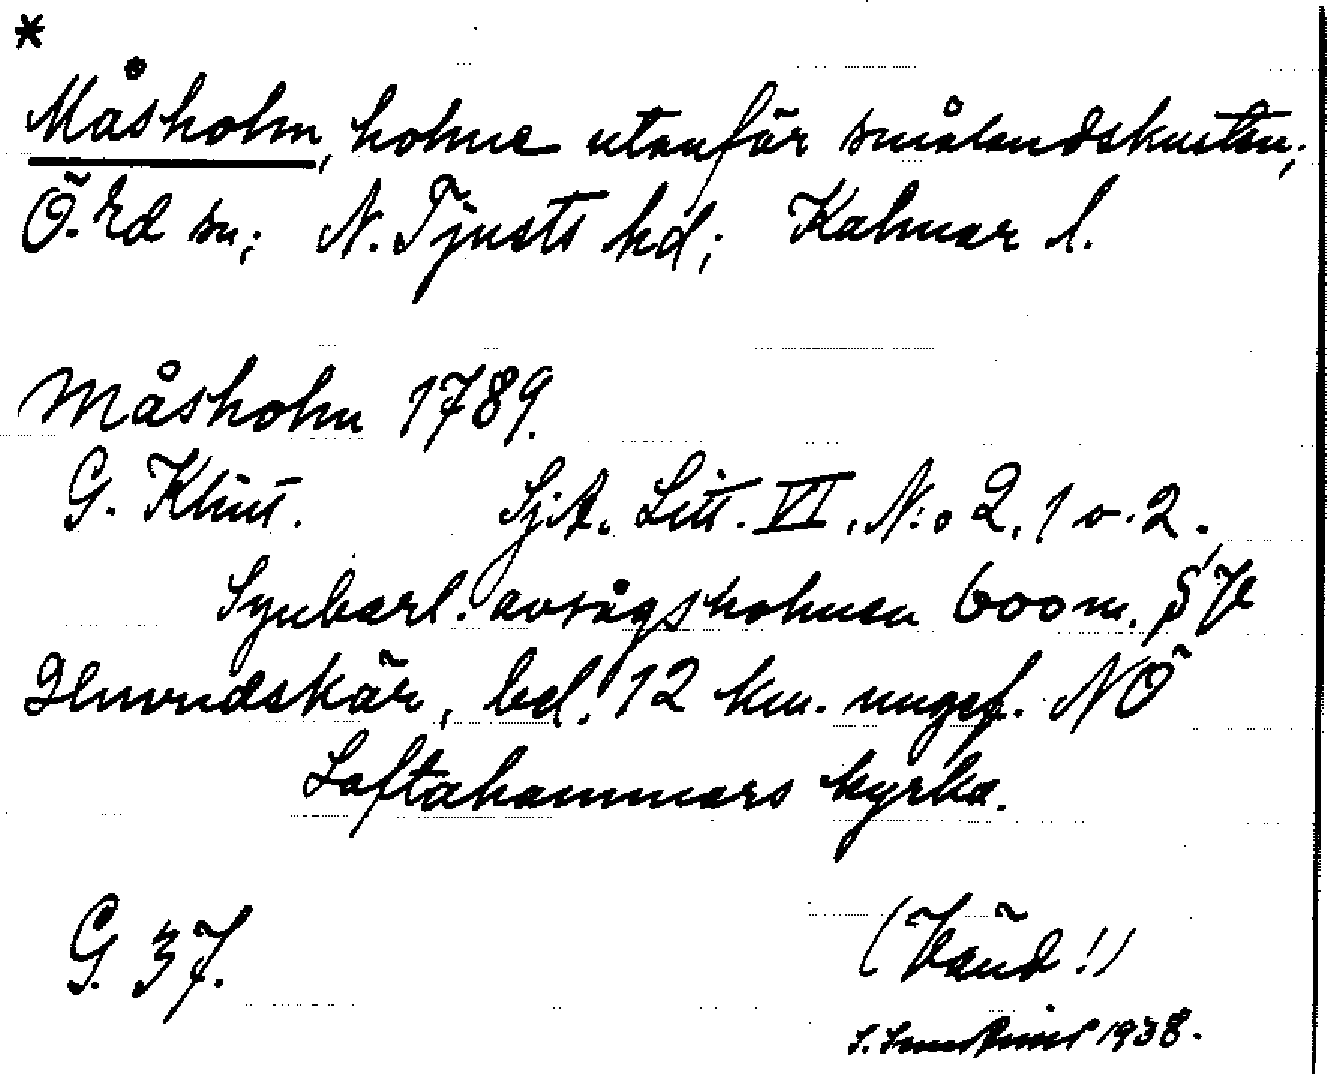 *
Måsholm, holme utanför smålandskusten;
Ö. Ed sn; N. Tjusts hd; Kalmar l.
Måsholm 1789.
G. Klint. Sjk. Litt. VI, N:o 2, 1 o. 2.
Synbarl. avsågs holmen 600 m. S V
Hmundskär, bel. 12 km. ungef. NÖ
Loftahammars kyrka.
G. 37.
(Vänd!)
1938.